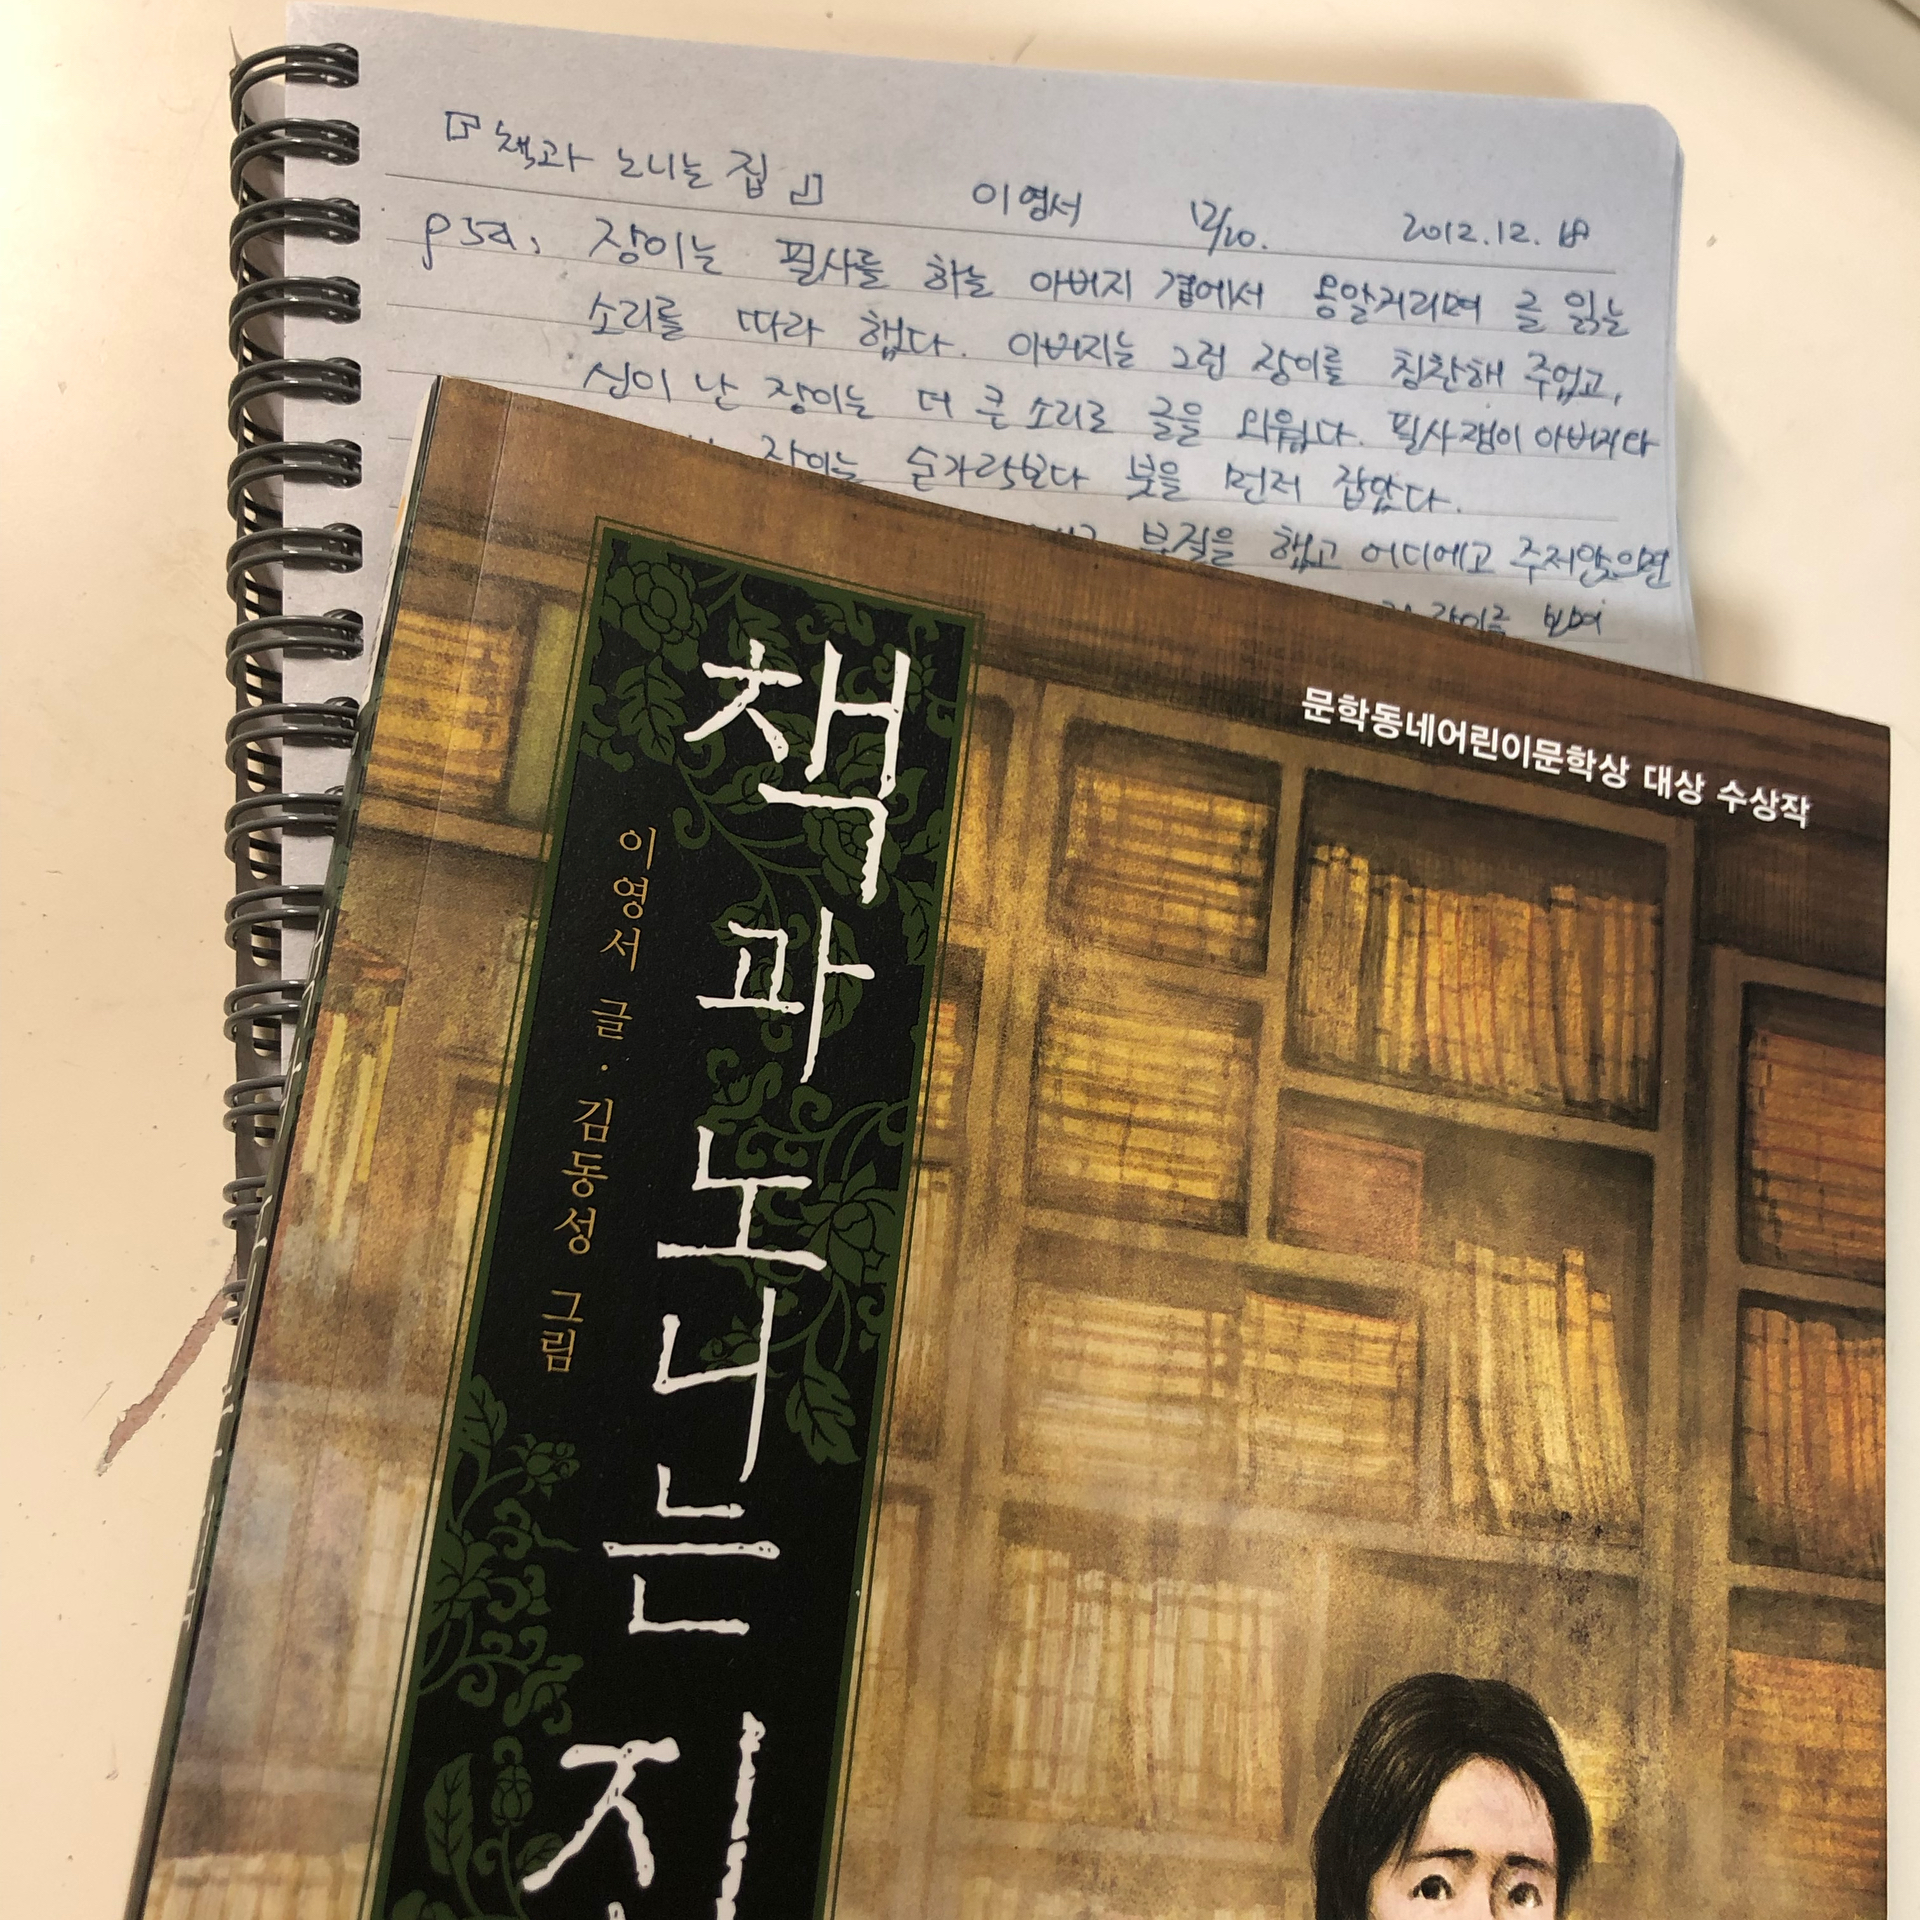 『책과 노니는 집』 이영서 12/20. 2012.12.
장이는 필사를 하는 아버지 곁에서 웅얼거리며 글 읽는
소리를 따라 했다. 아버지는 그런 장이를 칭찬해 주었고,
신이 난 장이는 더 큰 소리로 글을 외웠다. 필사쟁이 아버지다
장이는 숟가락보다 붓을 먼저 잡았다.
붓질을 했고 어디에고 주저앉으면
장이를 보며
문학동네어린이문학상 대상 수상작
책과 노니는
이영서 글 · 김동성 그림